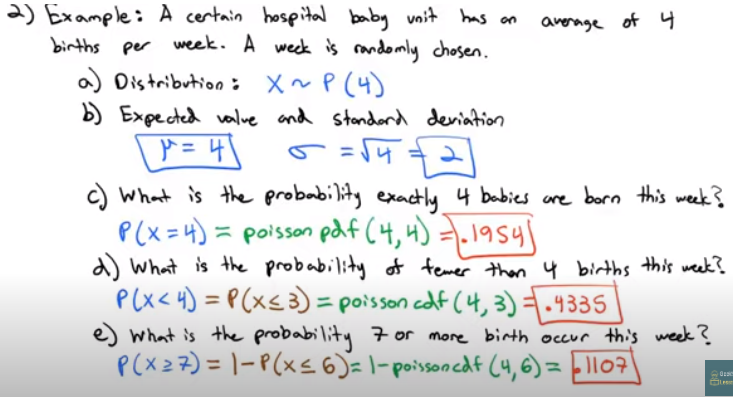 2) Example: A certain hospital baby unit has an average of 4
births per week. A week is randomly chosen.
a) Distribution: X ~ P(4)
b) Expected value and standard deviation
μ = 4 σ = √4 = 2
c) What is the probability exactly 4 babies are born this week?
P(X=4) = poisson pdf (4,4) = .1954
d) What is the probability of fewer than 4 births this week?
P(X<4) = P(X≤3) = poisson cdf (4,3) = .4335
e) What is the probability 7 or more birth occur this week?
P(X≥7) = 1-P(X≤6) = 1-poissoncdf (4,6) = .1107